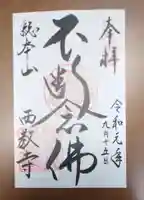 奉拝
令和元年
九月十五日
不断念佛
総本山
西教寺